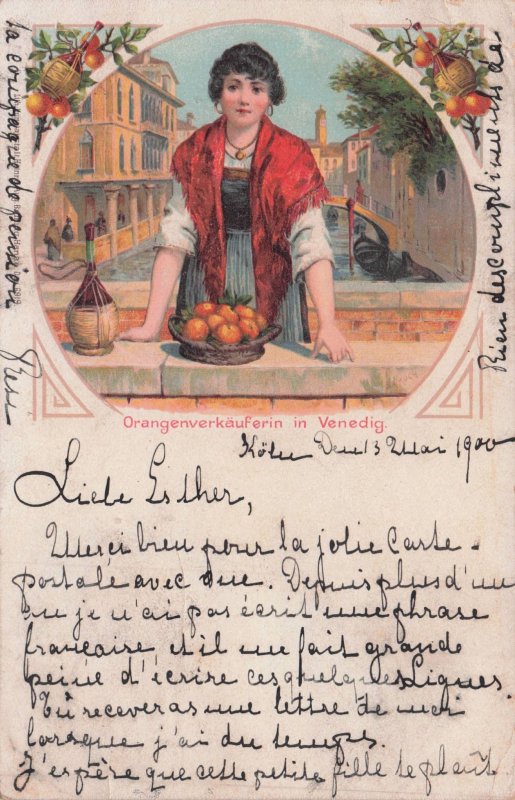 Orangenverkäuferin in Venedig.
Köln Den 13 Mai 1900
Liebe Esther,
Merci bien pour la jolie carte-
postale avec vue. Depuis plus d'un
an je n'ai pas écrit une phrase
francaire, et il me fait grande
peine d'écrire ces quelques lignes.
Tu receveras une lettre de moi
lorsque j'ai du temps.
J'espère que cette petite fille te plaît.
Rien des compliments de
la compagne de pension